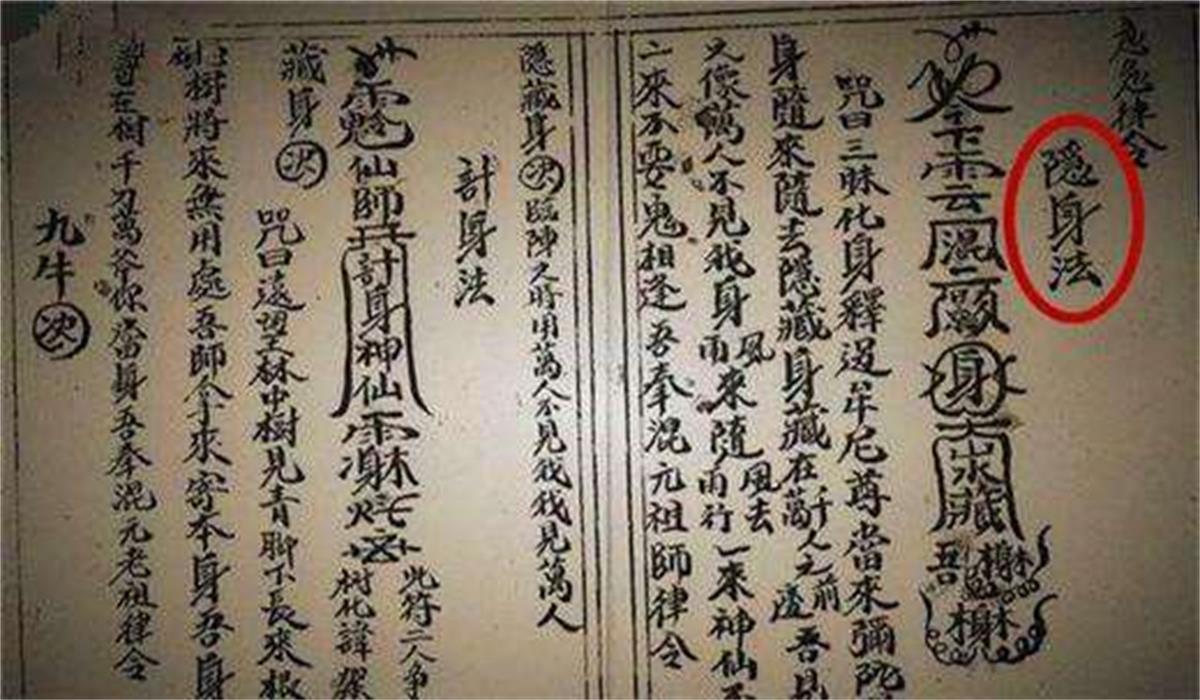 急急律令
隱身法
咒曰三昧化身釋迦牟尼尊當來彌陀
身隨來隨去隱藏身藏在萬千人之前遮吾見
又像萬人不見我身雨來隨雨行風來隨風去一來神仙不
二來不要鬼相逢吾奉混元祖師律令
隱藏身次臨陣又將用萬人不見我我見萬人
計身法
仙師 計身神仙
此符二人爭
樹化諱架
藏身次
咒曰遠望林中樹見青脚下長來根
樹將來無用處吾師令來寄本身吾身
寄在樹千刀萬斧你當身吾奉混元老祖律令
九牛次